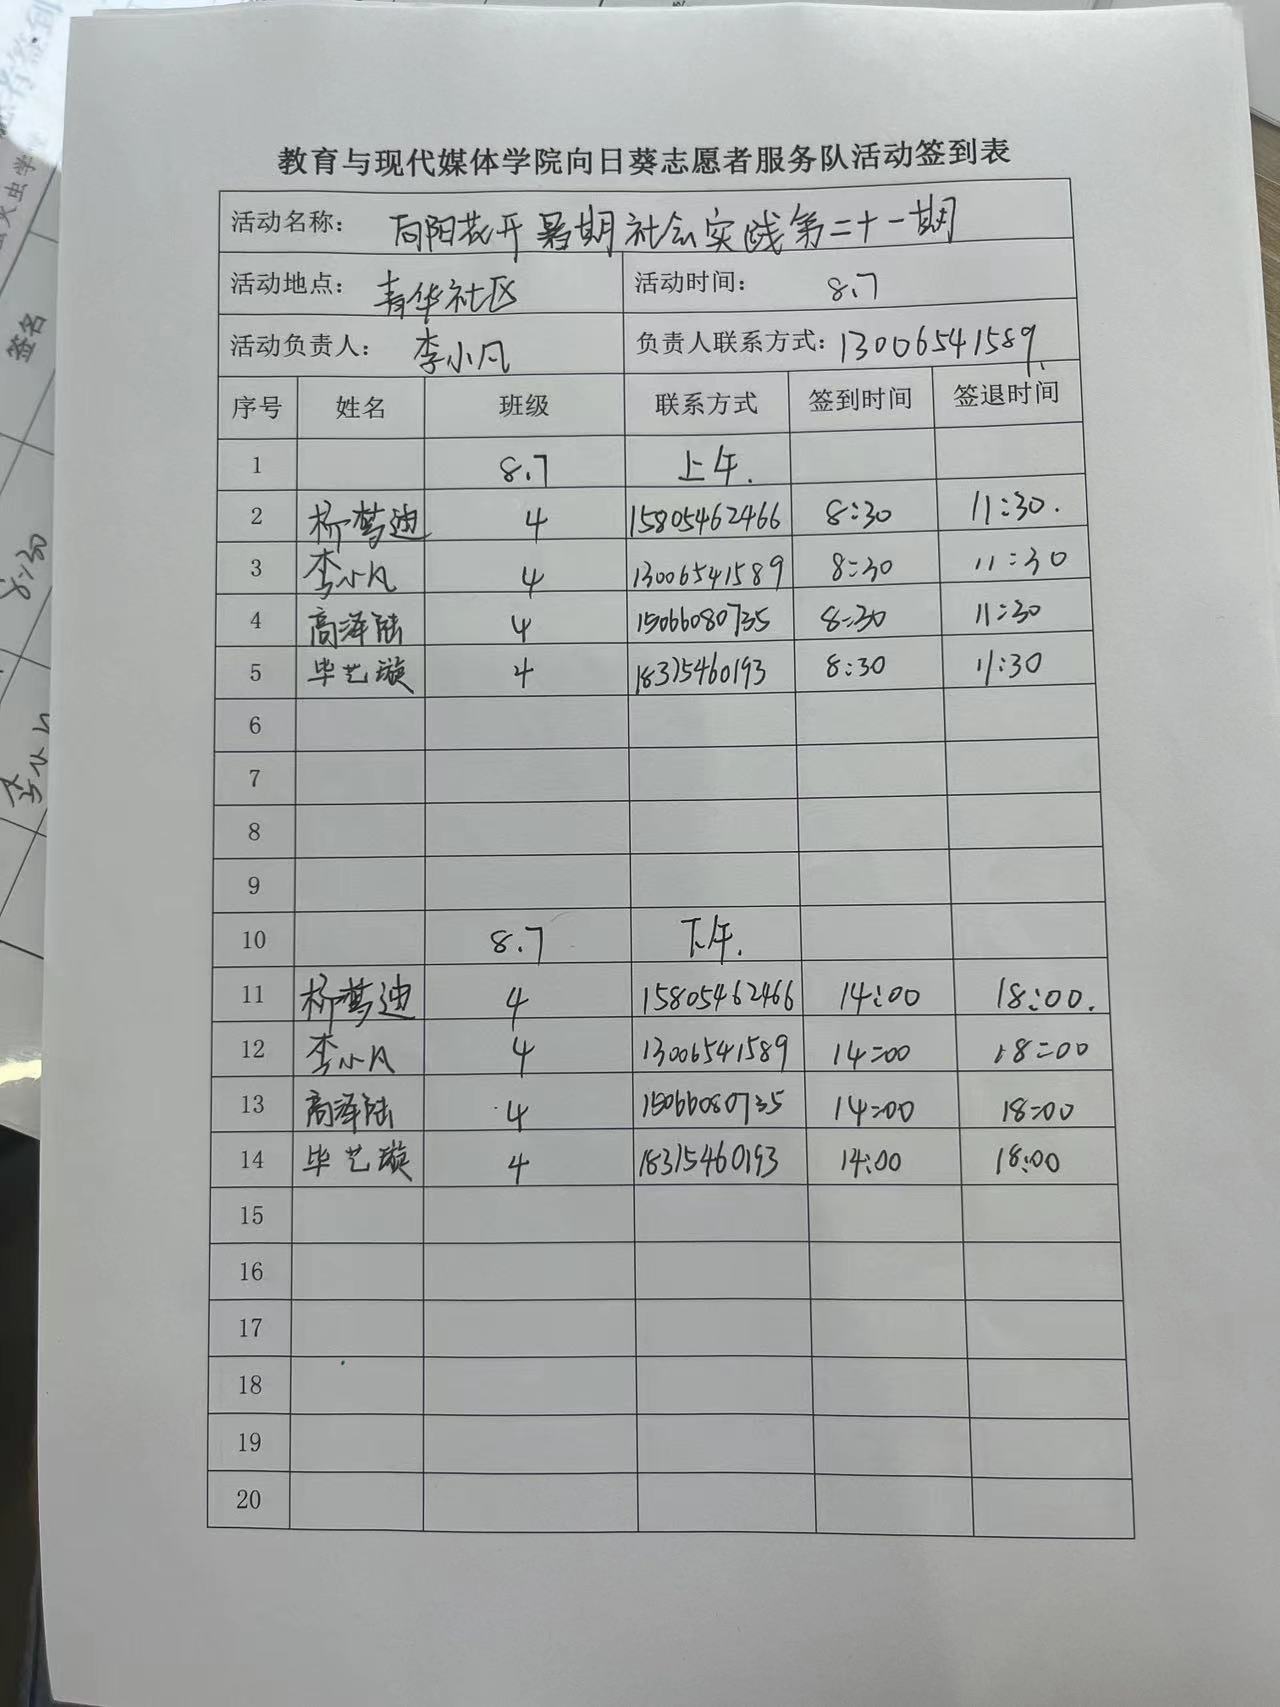 教育与现代媒体学院向日葵志愿者服务队活动签到表
活动名称： 向阳花开暑期社会实践第二十一期
活动地点： 青华社区 活动时间： 8.7
活动负责人： 李小凡 负责人联系方式：13006541589
序号 姓名 班级 联系方式 签到时间 签退时间
1 8.7 上午.
2 4 15805462466 8:30 11:30.
3 李小凡 4 13006541589 8:30 11:30
4 高泽陆 4 15066080735 8:30 11:30
5 毕艺璇 4 18315460193 8:30 11:30
6
7
8
9
10 8.7 下午.
11 4 15805462466 14:00 18:00.
12 李小凡 4 13006541589 14:00 18:00
13 高泽陆 4 15066080735 14:00 18:00
14 毕艺璇 4 18315460193 14:00 18:00
15
16
17
18
19
20
签名
8:30